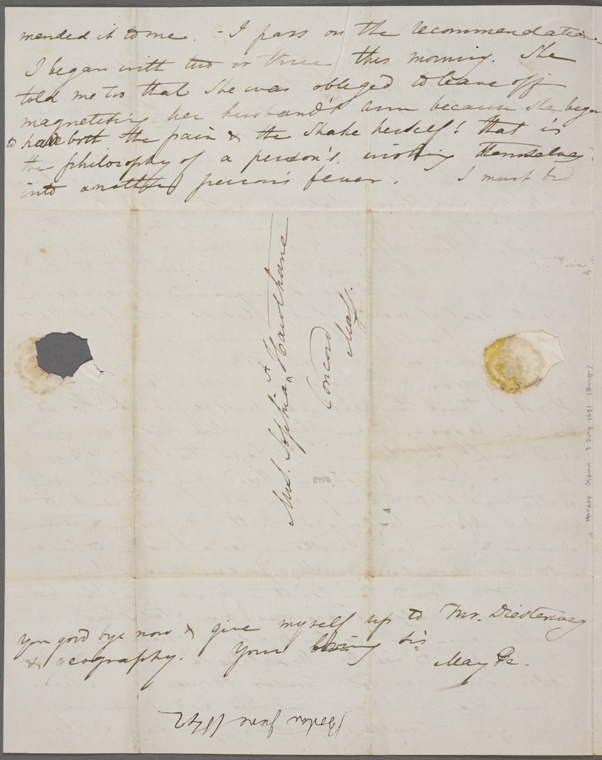 mended it to me. - I pass on the recommendation -
I began with two or three this morning. She
told me too that she was obliged to leave off
magnetising her husband's arm because she began
to have both the pain & the shake herself! that is
the philosophy of a person's wishing themselves
into another person's fever. I must bid
Mrs. Sophia A Hawthorne
Concord
Mass.
you good bye now & give myself up to Mr. Diesterweg
& geography. Your loving sis
Mary
Boston June 1842
Horace Mann 3 July 1981